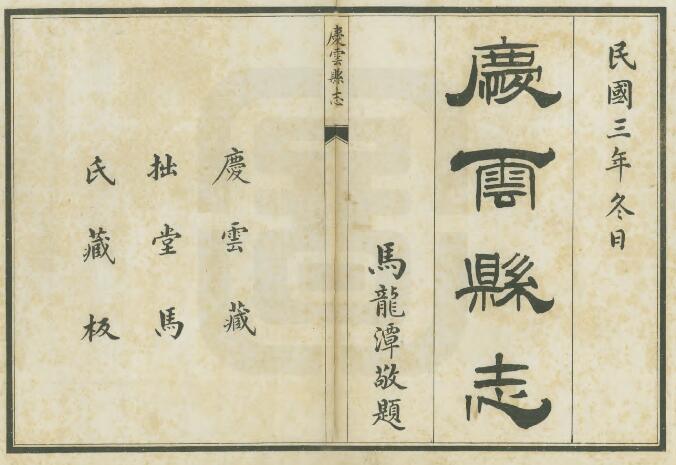 民國三年冬日
慶雲縣志
馬龍潭敬題
慶雲縣志
慶雲藏
拙堂馬
氏藏板